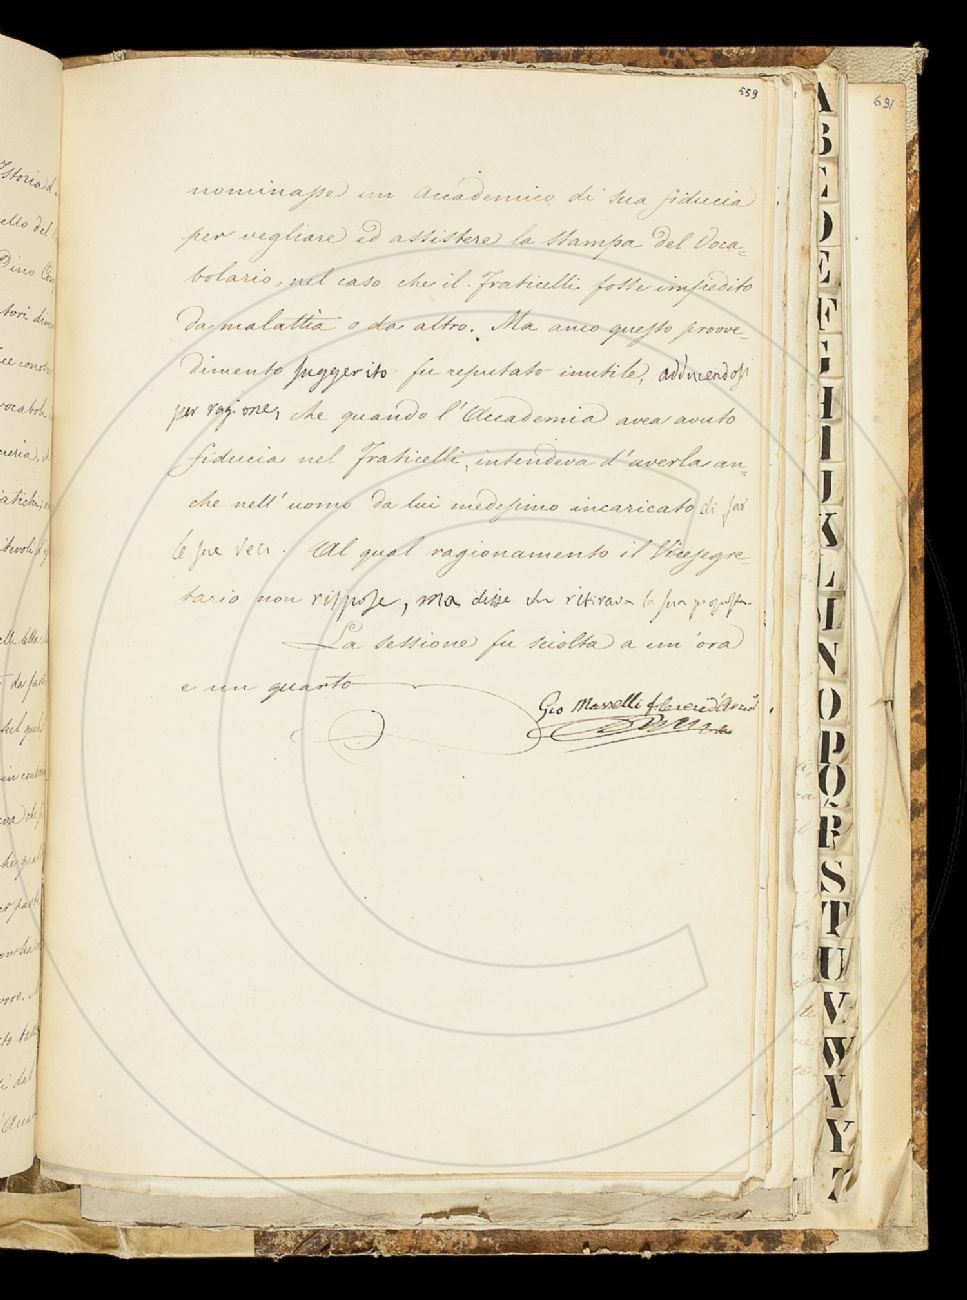 559
nominasse un Accademico di sua fiducia
per vegliare ed assistere la stampa del Voca=
bolario, nel caso che il Fraticelli fosse impedito
da malattia o da altro. Ma anco questo provve=
dimento suggerito fu reputato inutile, adducendosi
per ragione, che quando l'Accademia avea avuto
fiducia nel Fraticelli, intendeva d'averla an=
che nell'uomo da lui medesimo incaricato di far
le sue veci. Al qual ragionamento il Vicesegre=
tario non rispose, ma disse che ritirava la sua proposta.
La sessione fu sciolta a un'ora
e un quarto
Gio Masselli
691
A
B
C
D
E
F
G
H
I
J
K
L
M
N
O
P
Q
R
S
T
U
V
W
X
Y
Z